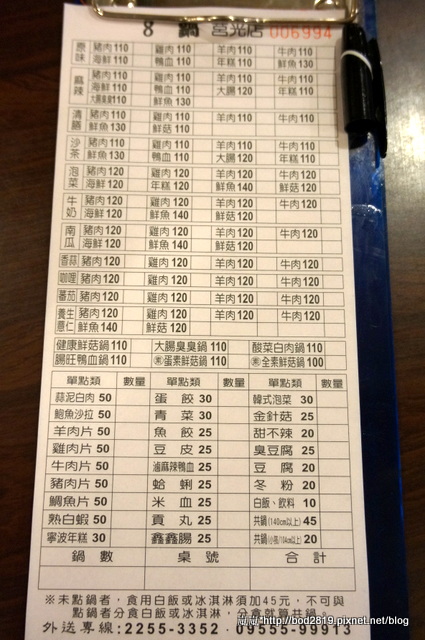 8 鍋 宮光店 006994
原味 豬肉110 雞肉110 羊肉110 牛肉110
海鮮110 鴨血110 年糕110 鮮魚130
麻辣 豬肉110 雞肉110 羊肉110 牛肉110
海鮮110 鴨血110 大腸120 年糕110
大腸臭臭110 鮮魚130
清 豬肉110 雞肉110 羊肉110 牛肉110
鮮魚130 鮮菇110
沙茶 豬肉110 雞肉110 羊肉110 牛肉110
鮮魚130 鴨血110 大腸120 年糕110
泡菜 豬肉120 雞肉120 羊肉120 牛肉120
海鮮120 年糕120 鮮魚140 鮮菇120
牛奶 豬肉120 雞肉120 羊肉120 牛肉120
海鮮120 鮮魚140 鮮菇120
南瓜 豬肉120 雞肉120 羊肉120 牛肉120
海鮮120 鮮魚140 鮮菇120
香蒜 豬肉120 雞肉120 羊肉120 牛肉120
咖哩 豬肉120 雞肉120 羊肉120 牛肉120
蕃茄 豬肉120 雞肉120 羊肉120 牛肉120
養生薏仁 豬肉120 雞肉120 羊肉120 牛肉120
鮮魚140 鮮菇120
健康鮮菇鍋110 大腸臭臭鍋110 酸菜白肉鍋110
腸旺鴨血鍋110 蛋素鮮菇鍋110 全素鮮菇鍋100
單點類 數量 單點類 數量 單點類 數量
蒜泥白肉 50 蛋餃 30 韓式泡菜 30
鮑魚沙拉 50 青菜 30 金針菇 25
羊肉片 50 魚餃 25 甜不辣 20
雞肉片 50 豆皮 25 臭豆腐 25
牛肉片 50 滷麻辣鴨血 25 豆腐 20
豬肉片 50 蛤蜊 25 冬粉 20
鯛魚片 50 米血 25 白飯、飲料 10
熟白蝦 50 貢丸 25 共鍋(140cm以上) 45
寧波年糕 30 鑫鑫腸 25 共鍋(小孩/104cm以上) 20
鍋數 桌號 合計
※未點鍋者，食用白飯或冰淇淋須加45元，不可與
點鍋者分食白飯或冰淇淋，分食就算共鍋。
外送專線：2255-3352．09555-99913
http://bod2819.pixnet.net/blog